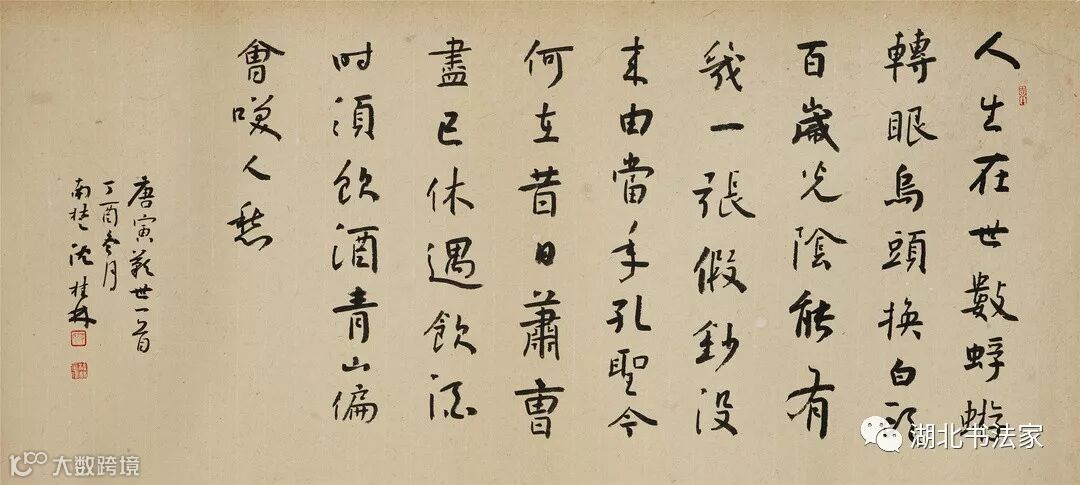 人生在世數蜉蝣
轉眼烏頭換白頭
百歲光陰能有
幾一張假鈔沒
来由當年孔聖今
何在昔日蕭曹
盡已休遇飲酒
时須飲酒青山偏
會笑人愁
唐寅歎世一首
丁酉冬月
南楚沈桂林
湖北书法家
大数跨境